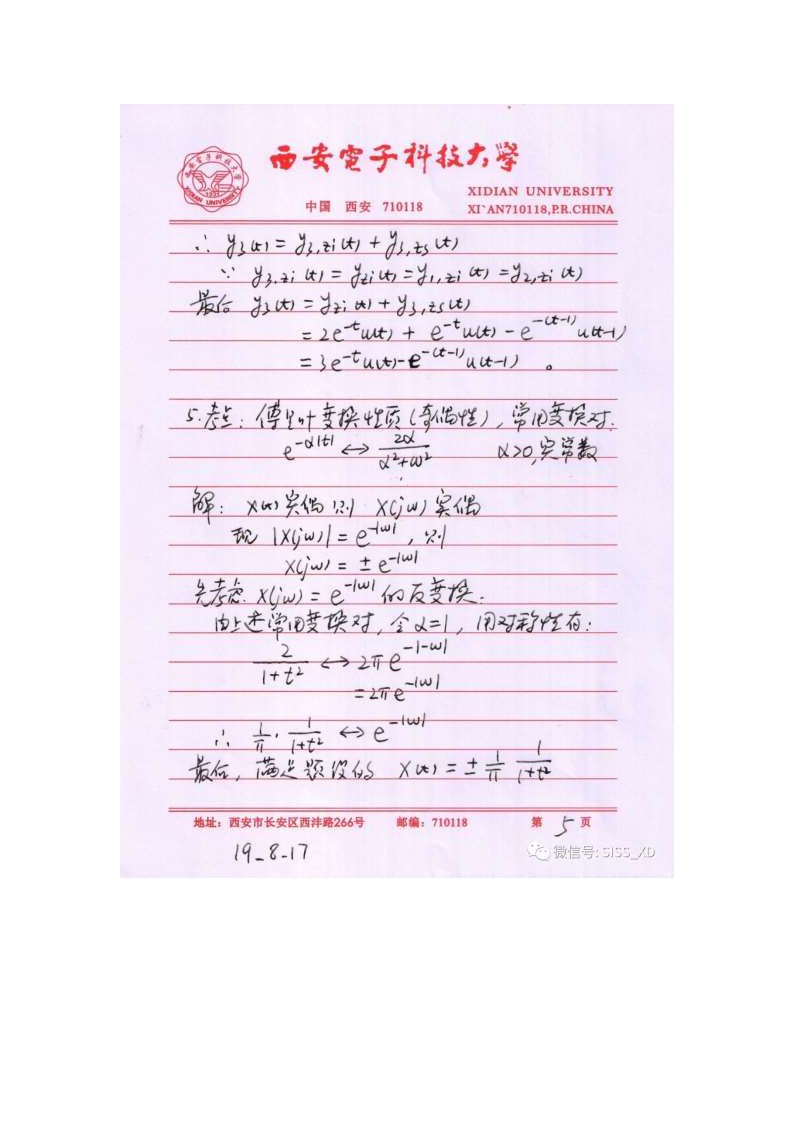 西安电子科技大学
XIDIAN UNIVERSITY
中国 西安 710118 XI`AN710118,P.R.CHINA
∴ y₃(t) = y₃,zi(t) + y₃,zs(t)
∵ y₃,zi(t) = yzi(t) = y₁,zi(t) = y₂,zi(t)
最后 y₃(t) = yzi(t) + y₃,zs(t)
= 2e^{-t}u(t) + e^{-t}u(t) - e^{-(t-1)}u(t-1)
= 3e^{-t}u(t) - e^{-(t-1)}u(t-1) 。
5.考点: 傅里叶变换性质(奇偶性), 常用变换对.
e^{-α|t|} ↔ 2α/(α²+ω²) α>0,实常数
解: x(t)实偶则 X(jω)实偶
现 |X(jω)| = e^{-|ω|}, 则
X(jω) = ± e^{-|ω|}
先考虑 X(jω) = e^{-|ω|} 的反变换.
由上述常用变换对, 令α=1, 用对称性有:
2/(1+t²) ↔ 2π e^{-|-ω|}
= 2π e^{-|ω|}
∴ 1/π · 1/(1+t²) ↔ e^{-|ω|}
最后, 满足题设的 x(t) = ± 1/π 1/(1+t²)
地址: 西安市长安区西沣路266号 邮编: 710118 第 5 页
19-8-17
微信号: SISS_XD